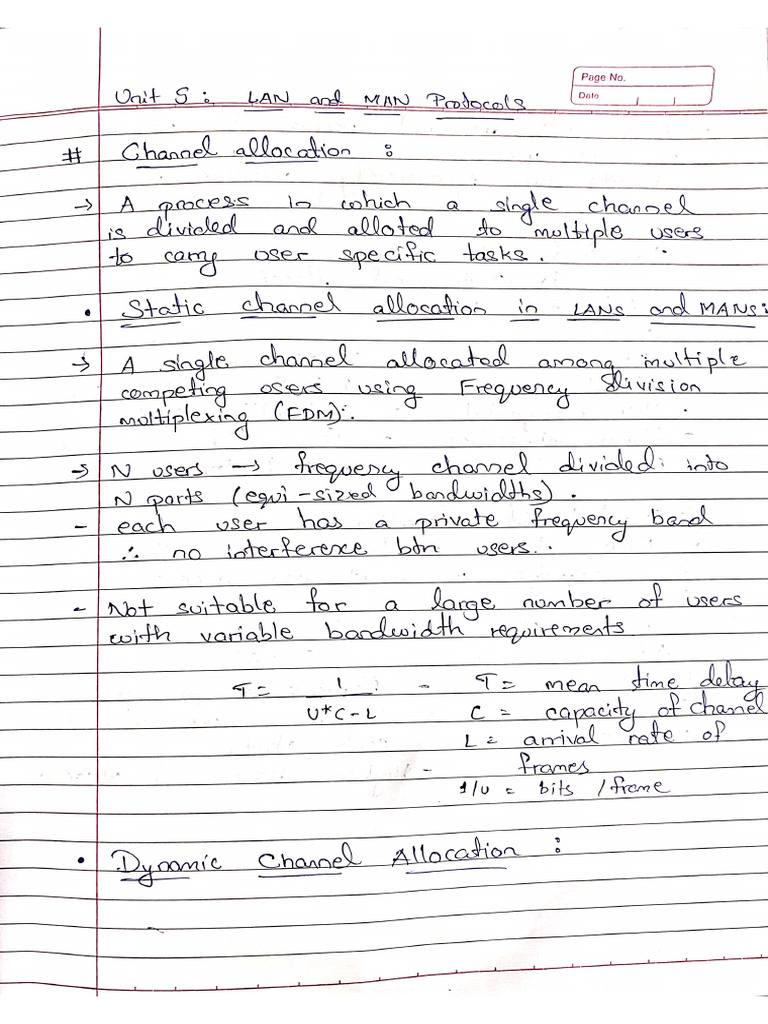 Page No.
Date
Unit 5 : LAN and MAN Protocols
# Channel allocation :
→ A process in which a single channel
is divided and alloted to multiple users
to carry user specific tasks.
• Static channel allocation in LANs and MANs:
→ A single channel allocated among multiple
competing users using Frequency division
multiplexing (FDM).
→ N users → frequency channel divided into
N parts (equi-sized bandwidths).
- each user has a private frequency band
∴ no interference btn users.
- Not suitable for a large number of users
with variable bandwidth requirements
T = 1 / U*C-L - T = mean time delay
C = capacity of channel
L = arrival rate of
frames
1/U = bits / frame
• Dynamic Channel Allocation :